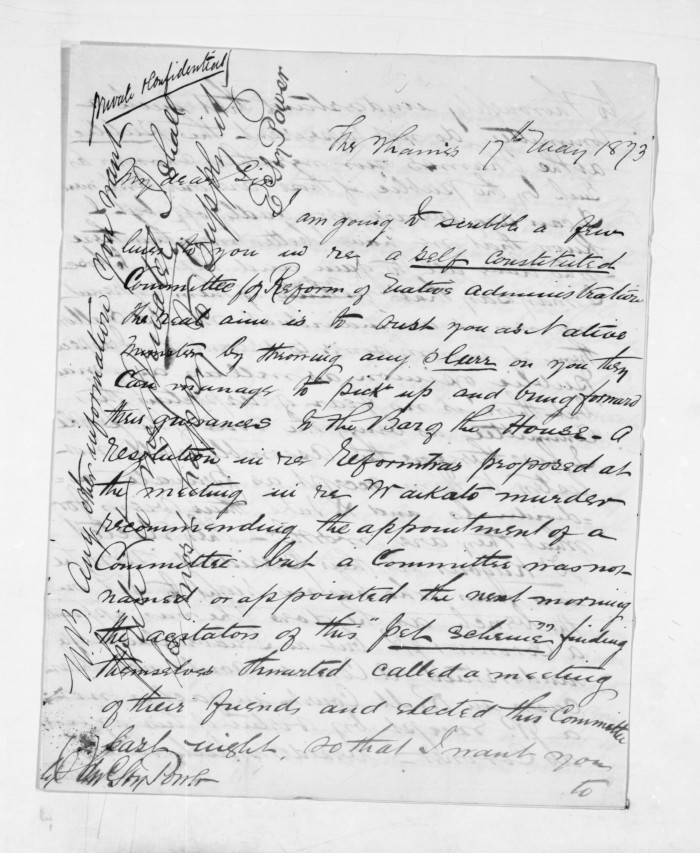 Private & Confidential
The Thames 17th May 1873
My dear Sir
I am going to scribble a few
lines to you in re a self constituted
Committee for Reform of Native administration
the real aim is to oust you as Native
Minister by throwing any slurr on you they
can manage to pick up and bring forward
their grievances to the Bar of the House - A
resolution in re Reform was proposed at
the meeting in re Waikato murder
recommending the appointment of a
Committee but a Committee was not
named or appointed the next morning
the agitators of this "pet scheme" finding
themselves thwarted called a meeting
of their friends and elected this Committee
last night, so that I want you
to
N.B Any other information you want
I shall
supply it
Power